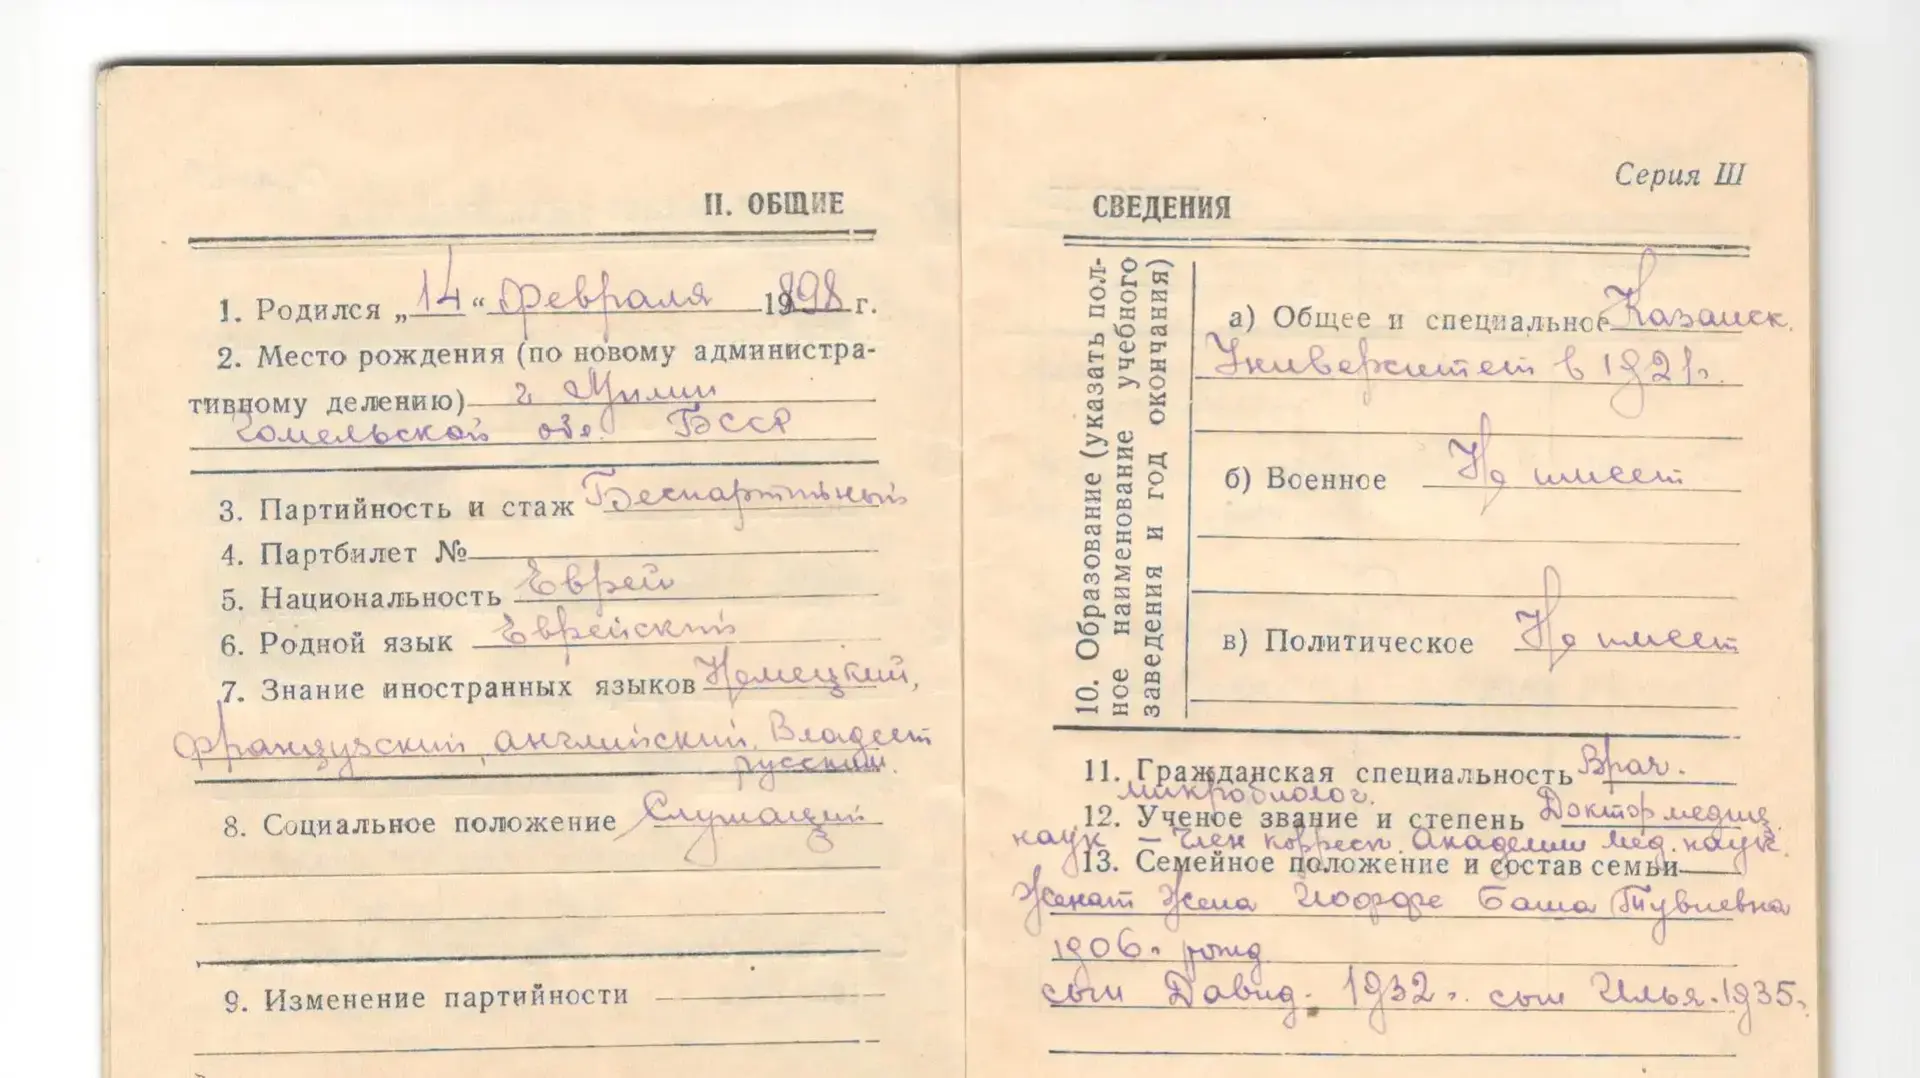 II. ОБЩИЕ
1. Родился „14“ февраля 1898 г.
2. Место рождения (по новому администра-
тивному делению) г.
Гомельской обл. БССР
3. Партийность и стаж Беспартийный
4. Партбилет №
5. Национальность Еврей
6. Родной язык Еврейский
7. Знание иностранных языков Немецкий,
французский, английский. Владеет
русским.
8. Социальное положение Служащий
9. Изменение партийности
Серия Ш
СВЕДЕНИЯ
10. Образование (указать пол-
ное наименование учебного
заведения и год окончания)
а) Общее и специальное Казанск.
Университет в 1921 г.
б) Военное Не имеет
в) Политическое Не имеет
11. Гражданская специальность Врач.
микробиолог.
12. Ученое звание и степень Доктор медиц.
наук – Член корресп. Академии мед. наук.
13. Семейное положение и состав семьи
Женат Жена Иоффе Баша Тувиевна
1906 г. рожд.
сын Давид. 1932 г. сын Илья. 1935 г.